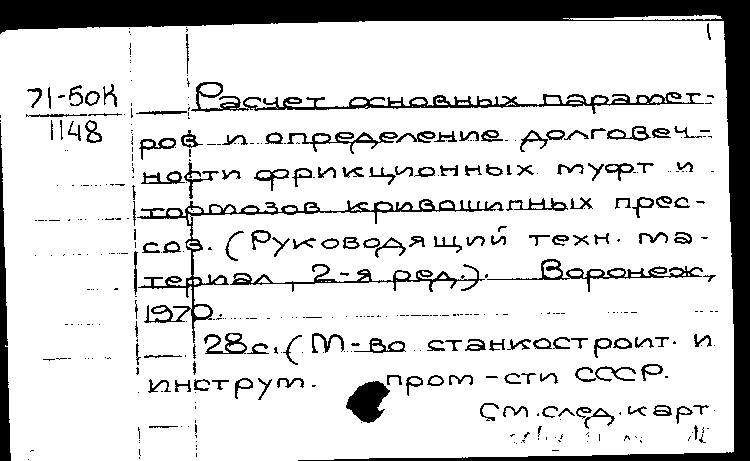 1
71-50К
1148
Расчет основных парамет-
ров и определение долговеч-
ности фрикционных муфт и
тормозов кривошипных прес-
сов. (Руководящий техн. ма-
териал, 2-я ред.). Воронеж,
1970.
28с. (М-во станкостроит. и
инструм. пром-сти СССР.
См.след.карт.